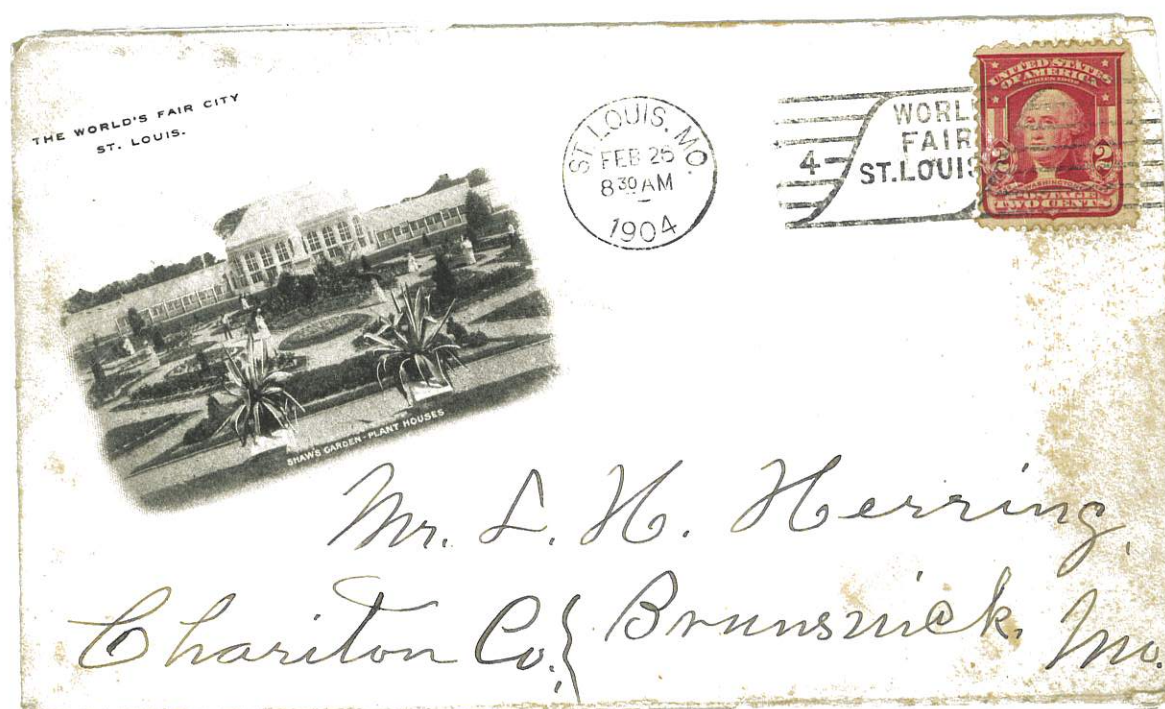 THE WORLD'S FAIR CITY
ST. LOUIS.
ST. LOUIS, MO.
FEB 26
8 30 AM
1904
WORL
FAIR
4 ST. LOUIS
UNITED STATES
OF AMERICA
SERIES 1902
2
TWO CENTS
SHAW'S GARDEN - PLANT HOUSES
Mr. L. H. Herring,
Chariton Co. { Brunswick. Mo.